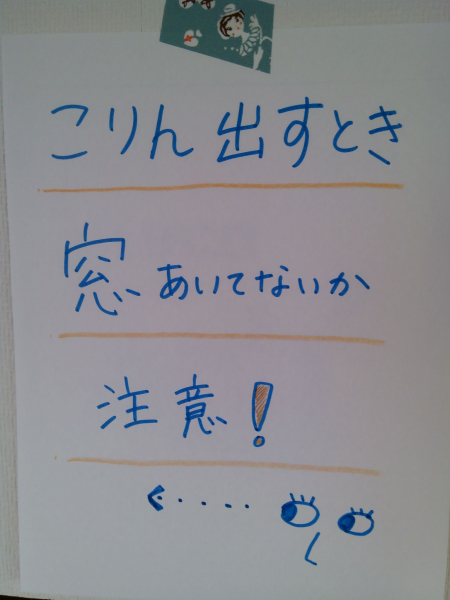 こりん出すとき
窓あいてないか
注意!